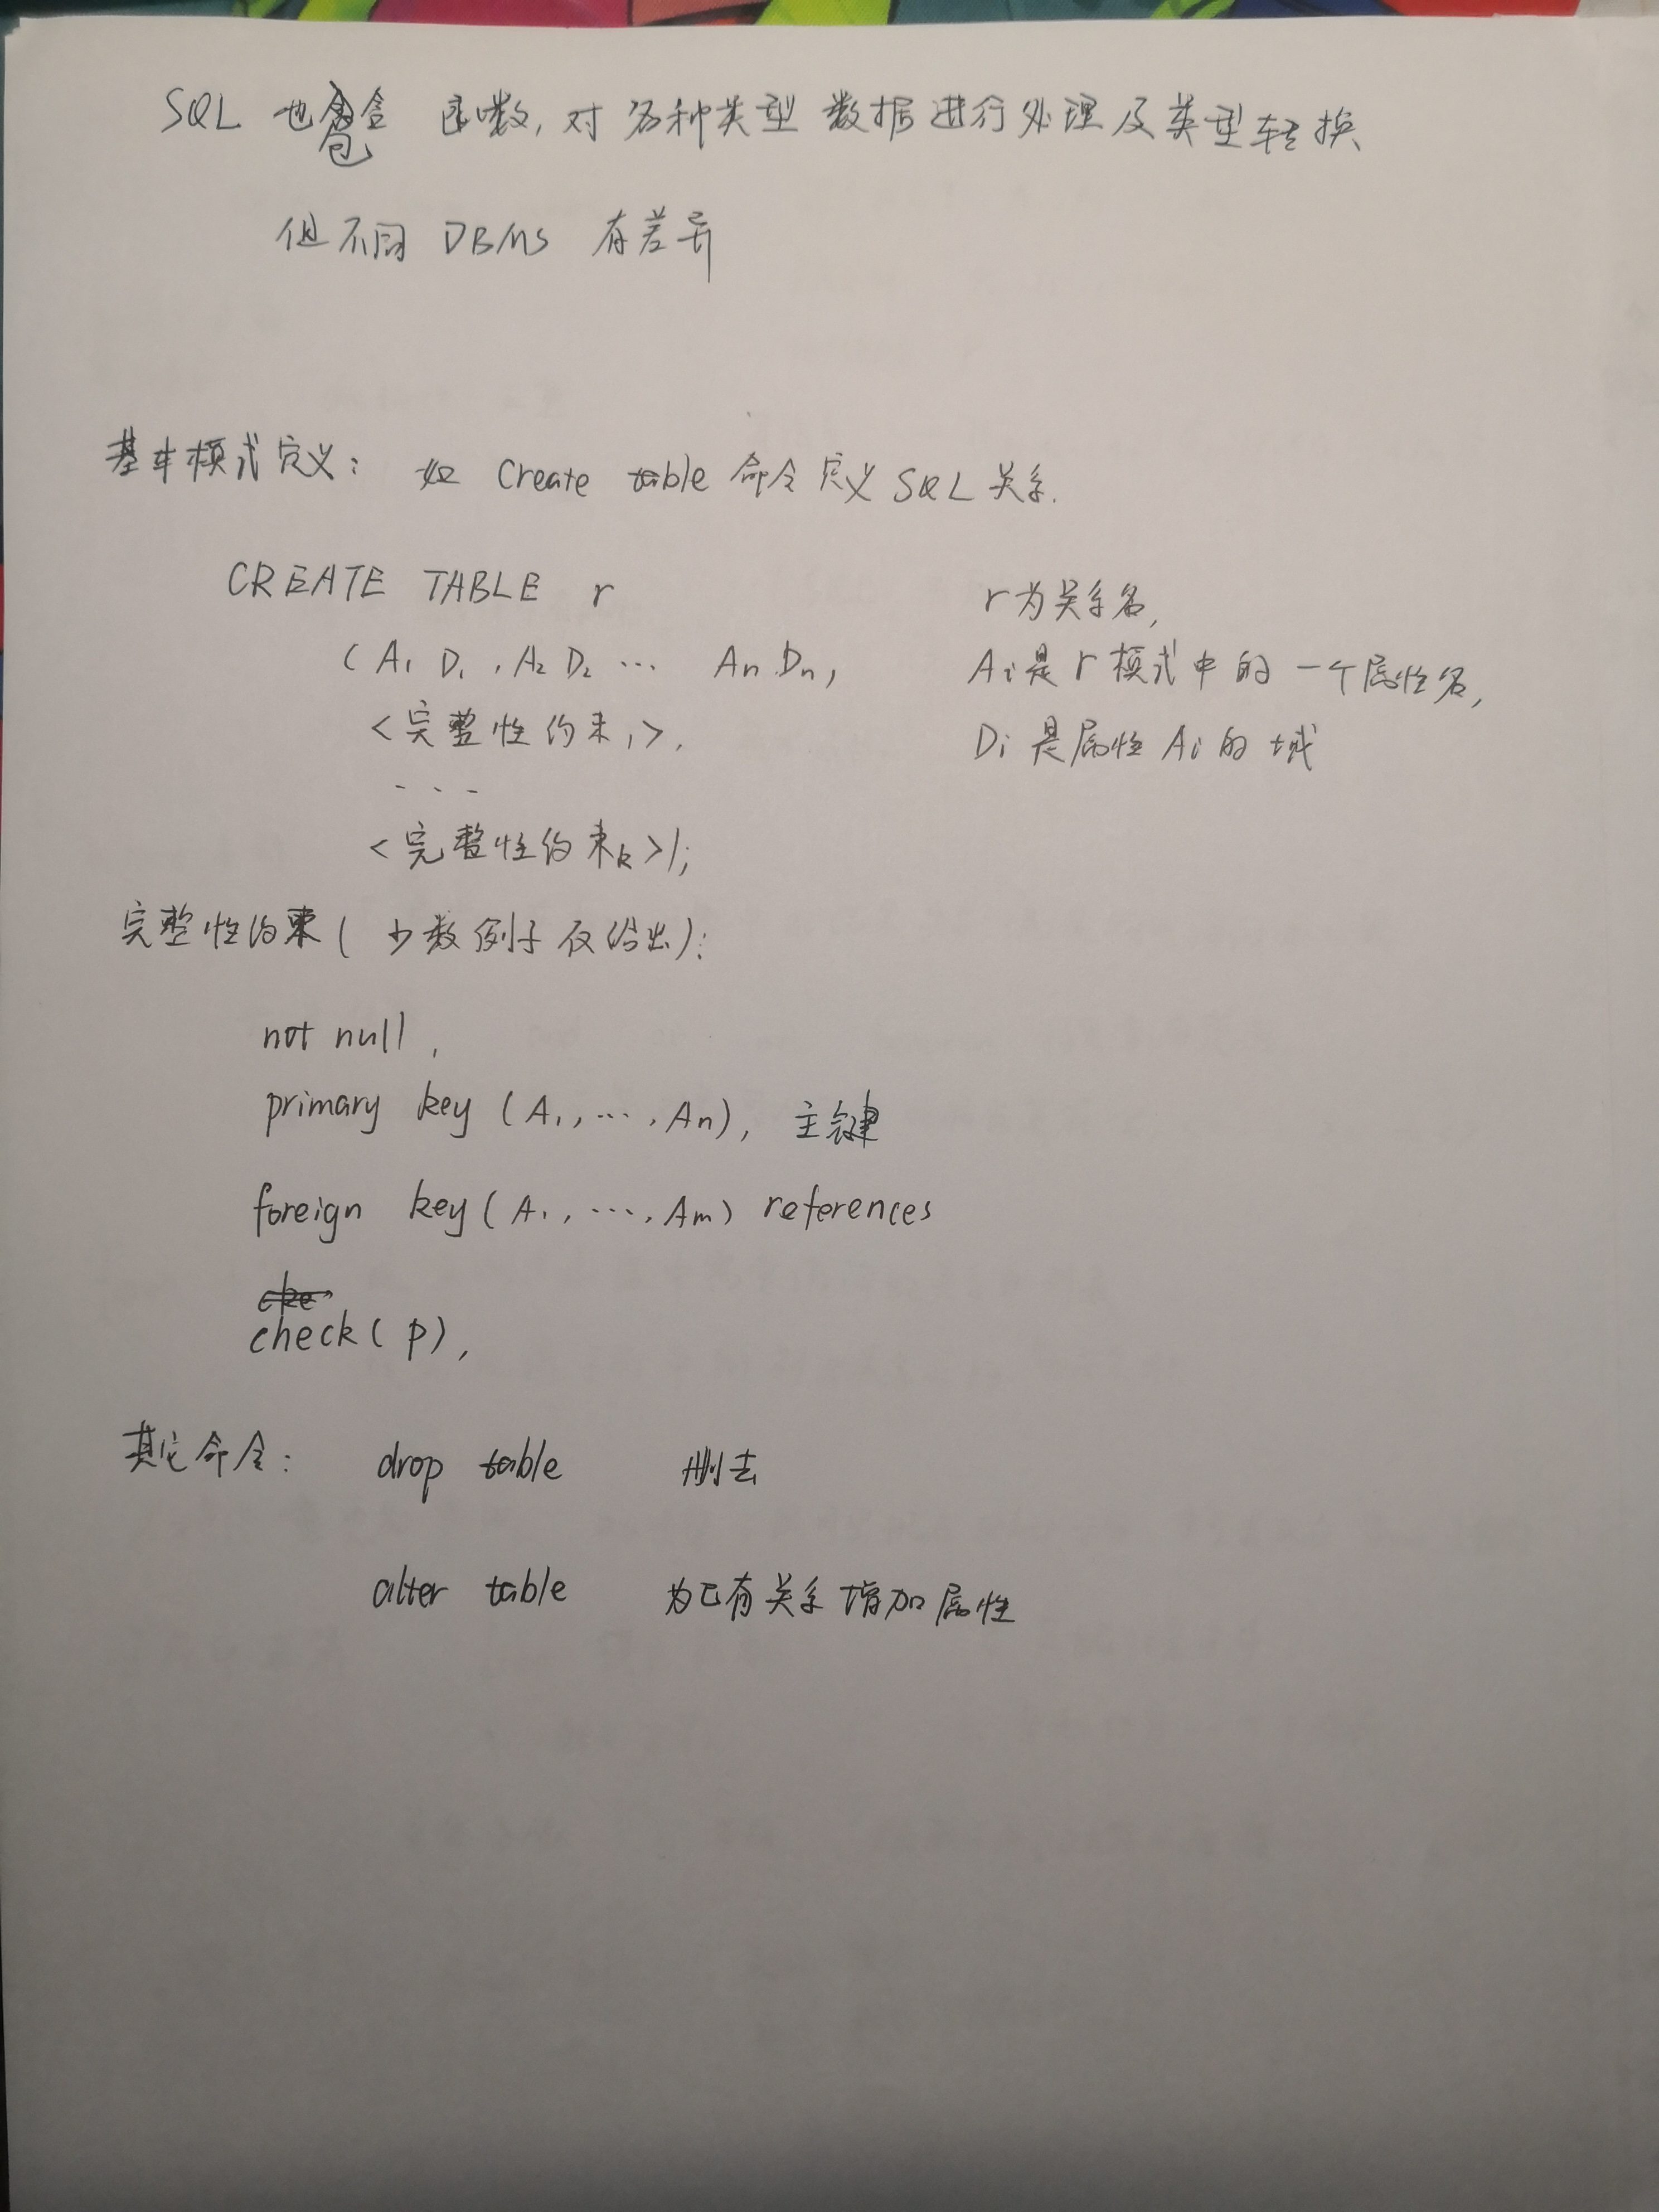 SQL 也包含 函数, 对各种类型 数据进行处理及类型转换
但不同 DBMS 有差异
基本模式定义: 如 Create table 命令定义 SQL 关系.
CREATE TABLE r
(A₁ D₁, A₂ D₂ … An Dn,
<完整性约束₁>,
...
<完整性约束k>);
r为关系名,
Ai是r模式中的一个属性名,
Di是属性Ai的域
完整性约束(少数例子仅给出):
not null,
primary key (A₁, …, An), 主键
foreign key (A₁, …, Am) references
check(p),
其它命令: drop table 删去
alter table 为已有关系增加属性